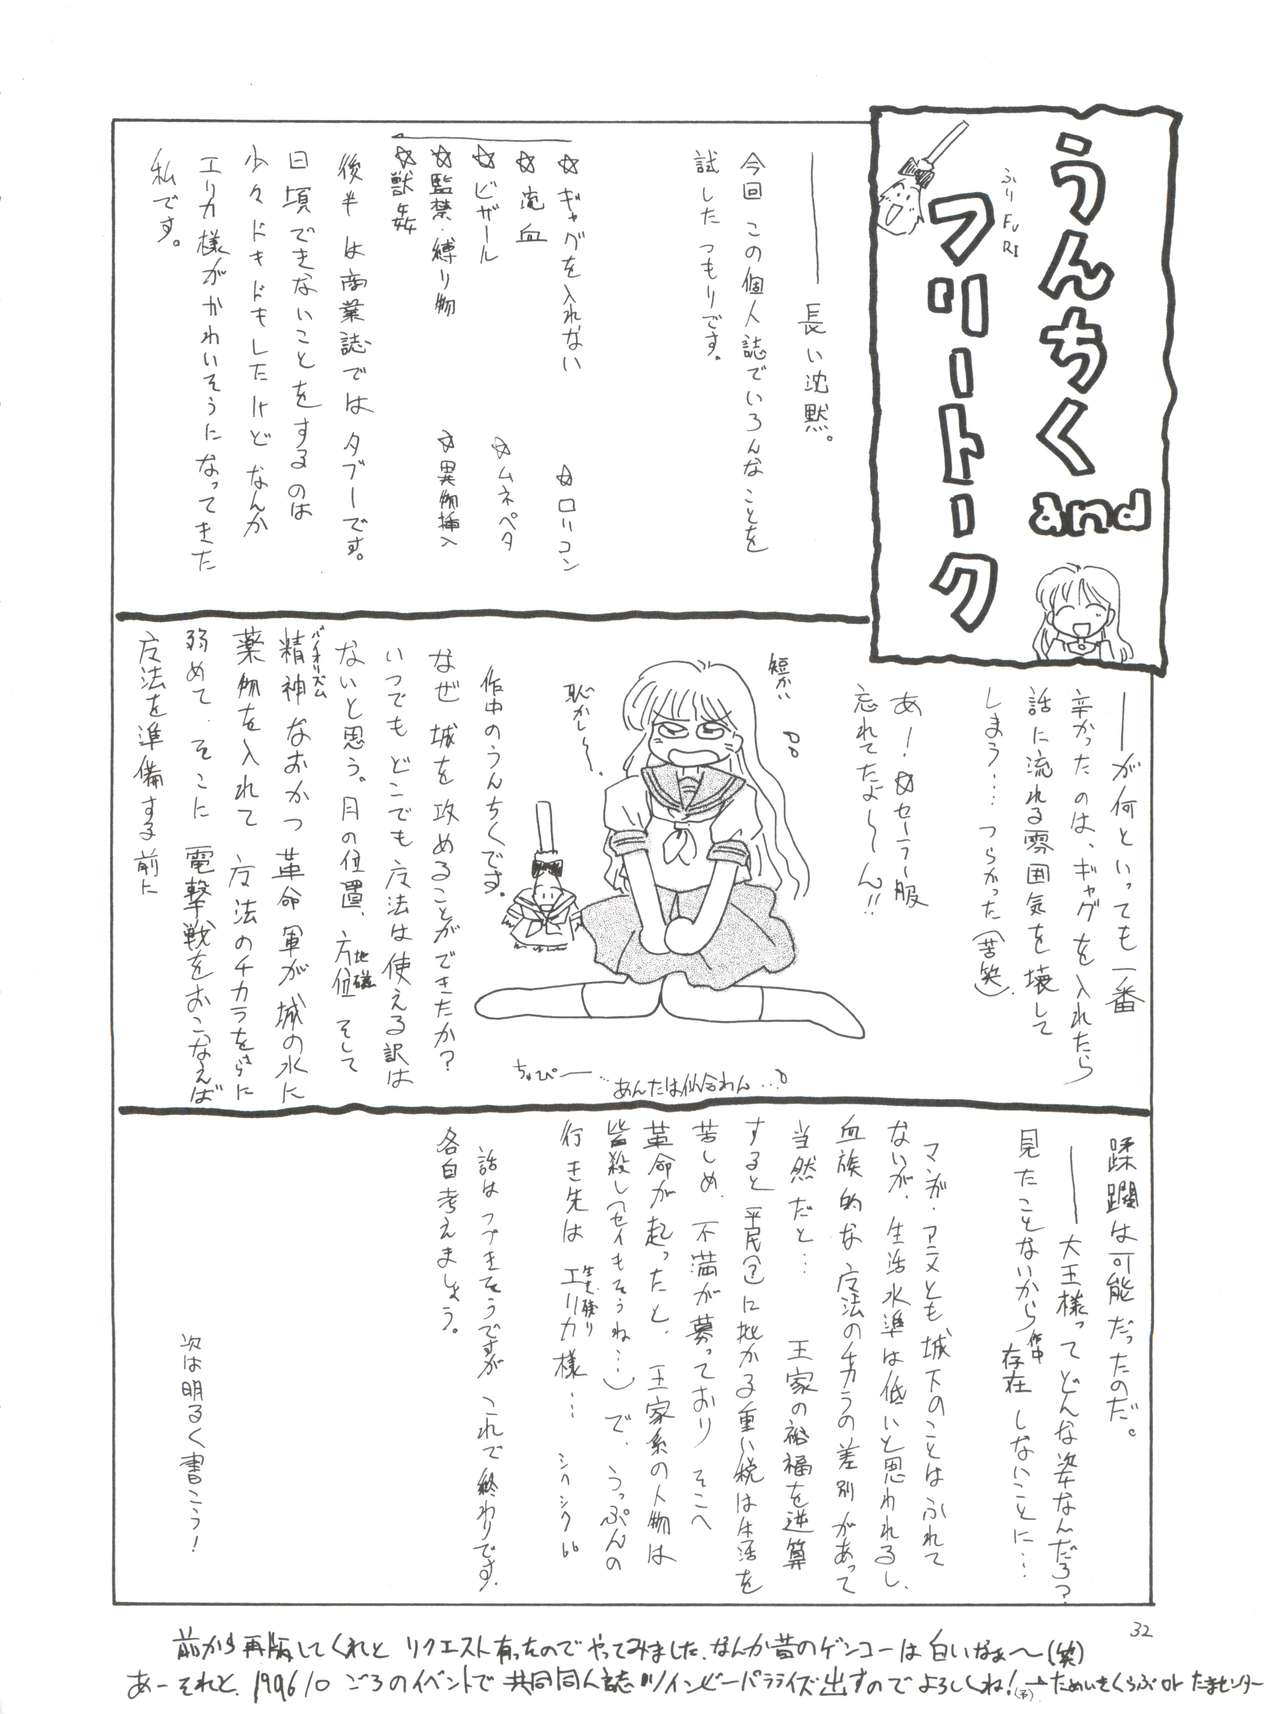 うんちく
and
フリートーク
ふりFURI
―――長い沈黙。
今回この個人誌でいろんなことを
試したつもりです。
☆ギャグを入れない ☆ロリコン
☆流血 ☆ムネペタ
☆ビザール ☆異物挿入
☆監禁・縛り物
☆獣姦
後半は商業誌ではタブーです。
日頃できないことをするのは
少々ドキドキしたけどなんか
エリカ様がかわいそうになってきた
私です。
――が何といっても一番
辛かったのは、ギャグを入れたら
話に流れる雰囲気を壊して
しまう…つらかった(苦笑)。
あ!☆セーラー服
忘れてたよ〜ん!!
短かい
恥かし〜。
ちゅぴー…
あんたは似合わん…
作中のうんちくです。
なぜ城を攻めることができたか?
いつでもどこでも魔法は使える訳は
ないと思う。月の位置、方位地磁そして
精神バイオリズムなおかつ革命軍が城の水に
薬物を入れて魔法のチカラをさらに
弱めて、そこに電撃戦をおこなえば
魔法を準備する前に
蹂躙は可能だったのだ。
――大王様ってどんな姿なんだろ?
見たことないから作中存在しないことに…
マンガ・アニメとも城下のことはふれて
ないが、生活水準は低いと思われるし、
血族的な魔法のチカラの差別があって
当然だと…王家の裕福を逆算
すると平民(?)に掛かる重い税は生活を
苦しめ、不満が募っておりそこへ
革命が起ったと、王家系の人物は
皆殺し(セイもそうね…)で、うっぷんの
行き先は生き残りエリカ様…シクシク
話はつづきそうですがこれで終わりです。
各自考えましょう。
次は明るく書こう!
32
前から再販してくれとリクエスト有ったのでやってみました、なんか昔のゲンコーは白いなぁ〜(笑)
あーそれと、1996/10ごろのイベントで共同同人誌ツインビーパラライズ出すのでよろしくね!(予)→ためいきくらぶor たまセンター